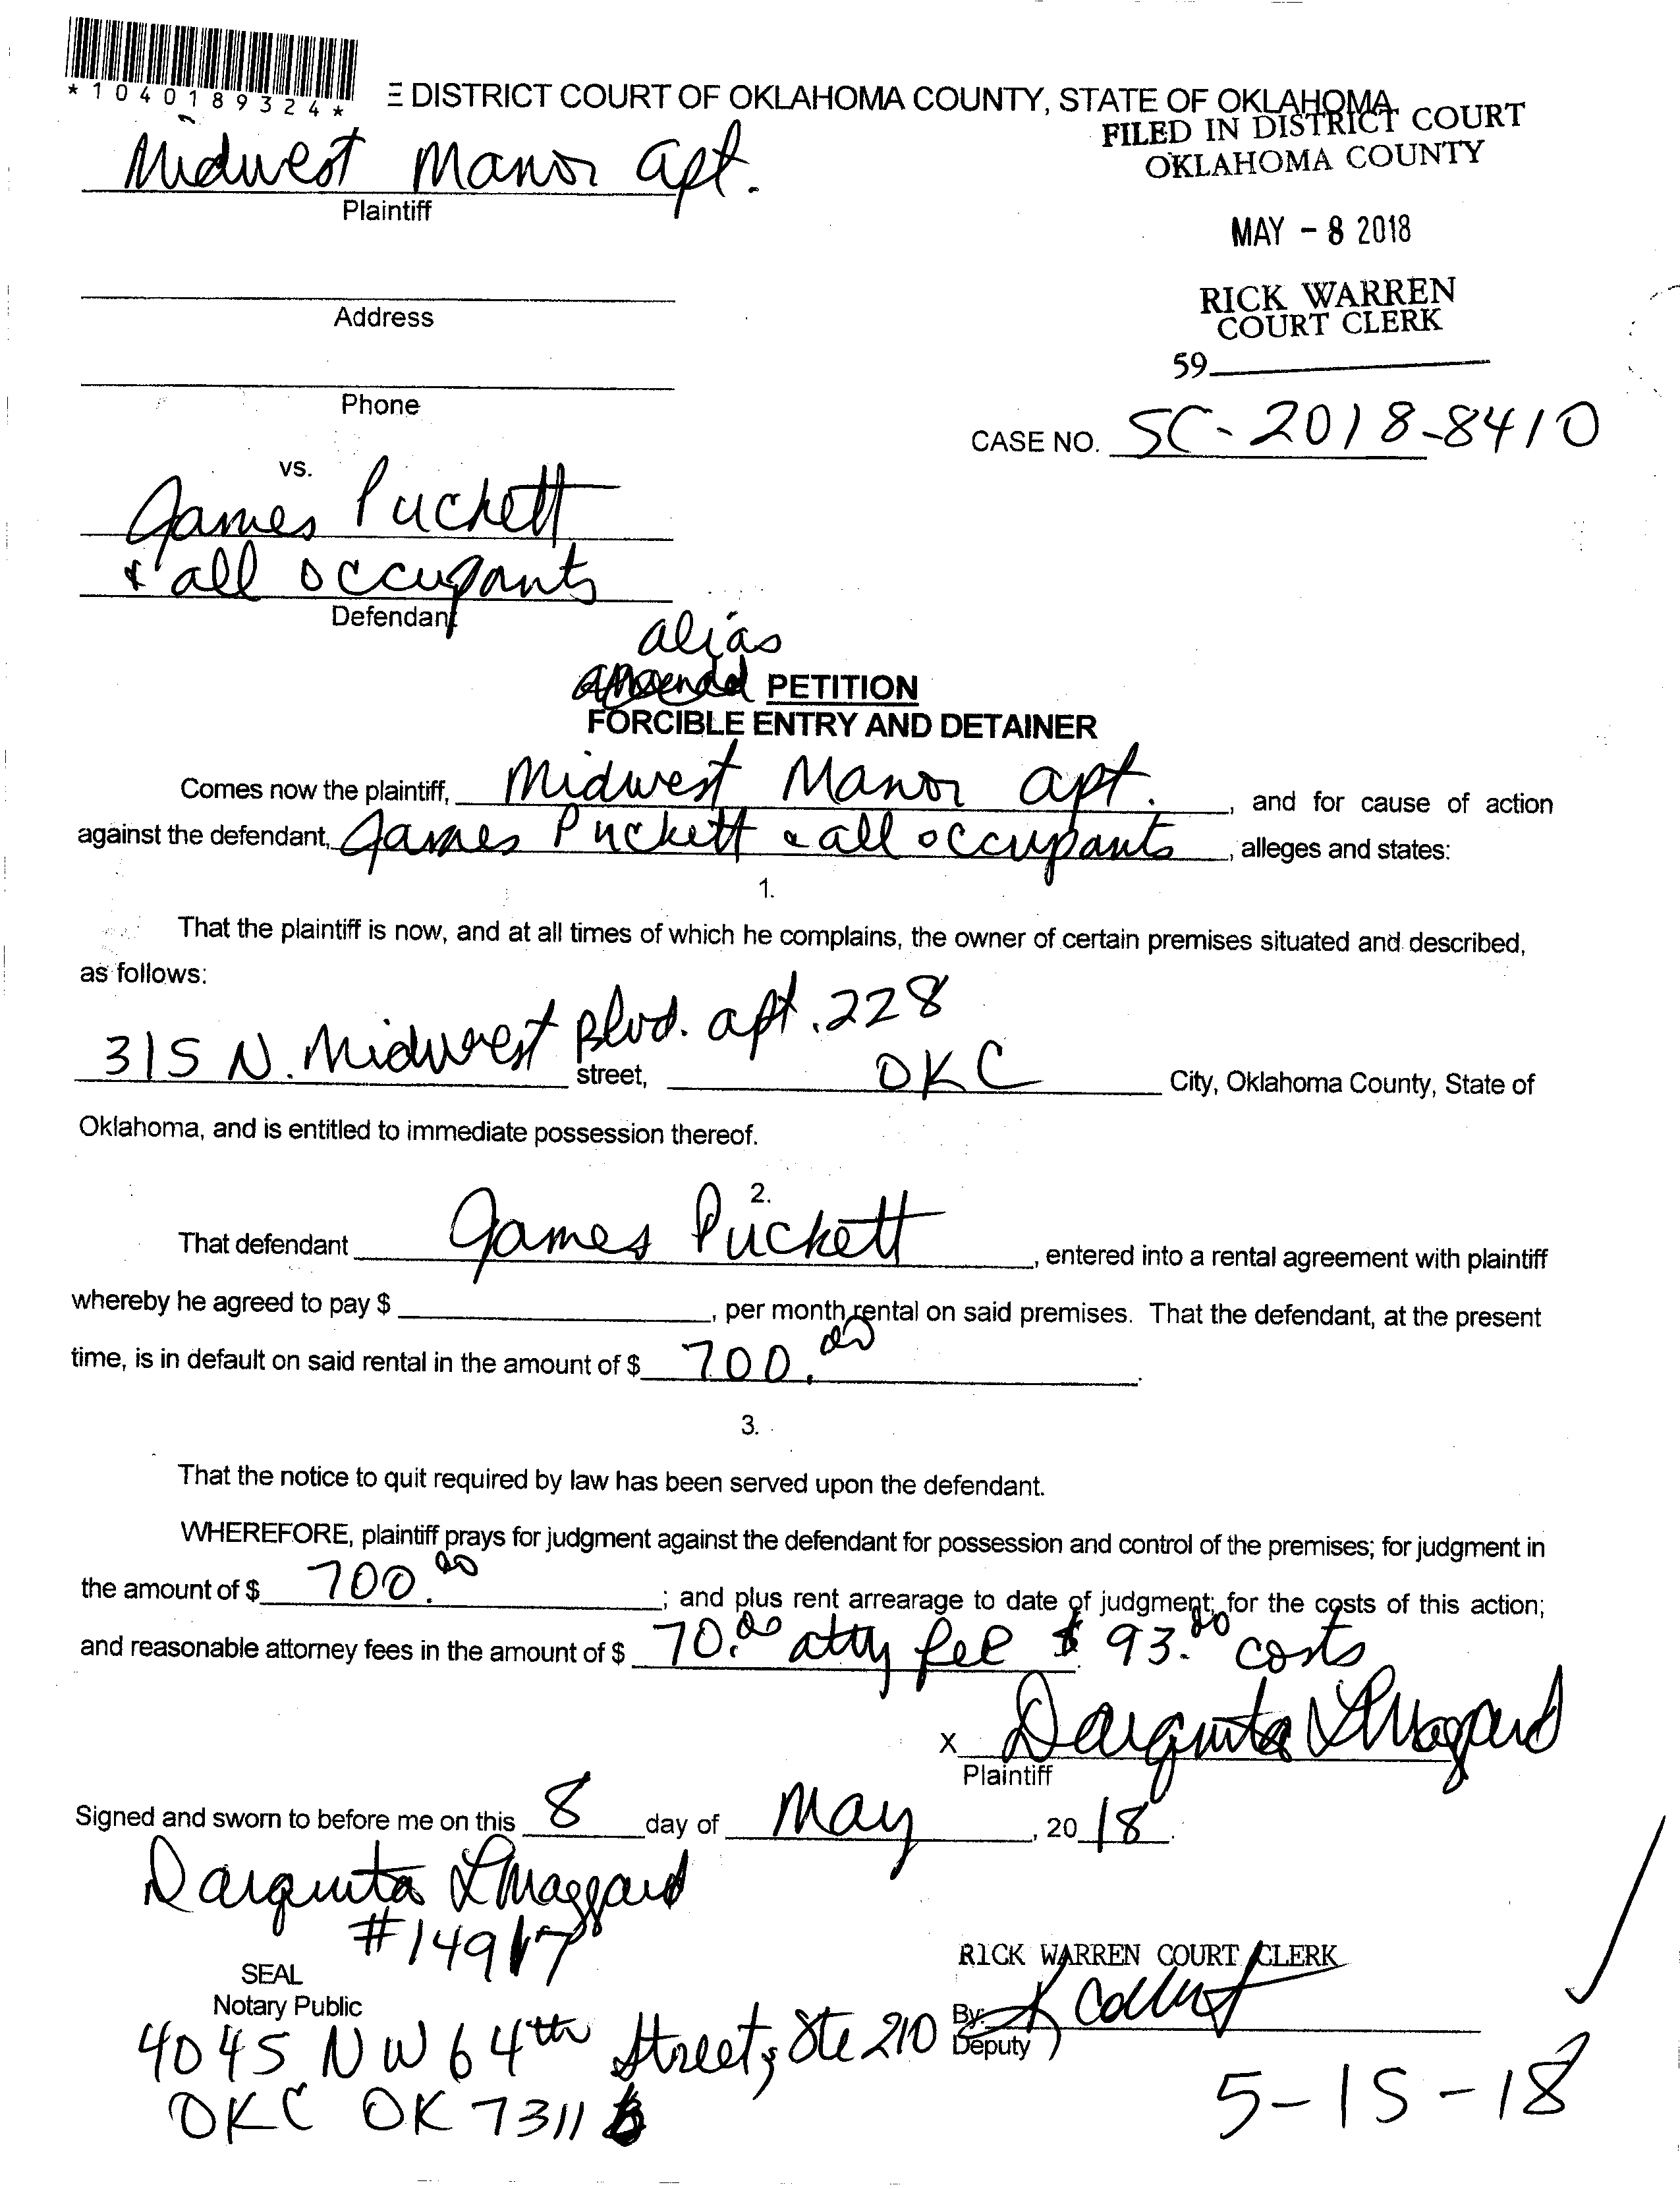 *1040189324*
E DISTRICT COURT OF OKLAHOMA COUNTY, STATE OF OKLAHOMA
FILED IN DISTRICT COURT
OKLAHOMA COUNTY
Midwest Manor apt.
Plaintiff
MAY - 8 2018
RICK WARREN
COURT CLERK
59
Address
Phone
CASE NO. SC-2018-8410
vs.
James Puckett
& all occupants
Defendant
alias
PETITION
FORCIBLE ENTRY AND DETAINER
Comes now the plaintiff, Midwest Manor apt., and for cause of action
against the defendant, James Puckett & all occupants, alleges and states:
1.
That the plaintiff is now, and at all times of which he complains, the owner of certain premises situated and described,
as follows:
315 N. Midwest Blvd. apt. 228
street, OKC City, Oklahoma County, State of
Oklahoma, and is entitled to immediate possession thereof.
2.
That defendant James Puckett, entered into a rental agreement with plaintiff
whereby he agreed to pay $, per month rental on said premises. That the defendant, at the present
time, is in default on said rental in the amount of $ 700.00.
3.
That the notice to quit required by law has been served upon the defendant.
WHEREFORE, plaintiff prays for judgment against the defendant for possession and control of the premises; for judgment in
the amount of $ 700.00; and plus rent arrearage to date of judgment; for the costs of this action;
and reasonable attorney fees in the amount of $ 70.00 atty fee $ 93.00 costs
X Darquita L Maggard
Plaintiff
Signed and sworn to before me on this 8 day of May, 2018.
Darquita L Maggard
#14917
SEAL
Notary Public
RICK WARREN COURT CLERK
By:
Deputy
4045 NW 64th Street, Ste 210
OKC OK 73116
5-15-18